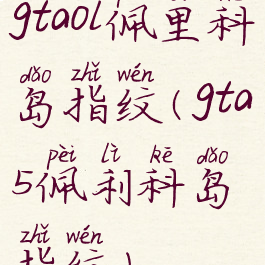 gtaol佩里科
dǎo zhǐ wén
岛指纹(gta
pèi lì kē dǎo
5佩利科岛
zhǐ wén
指纹)